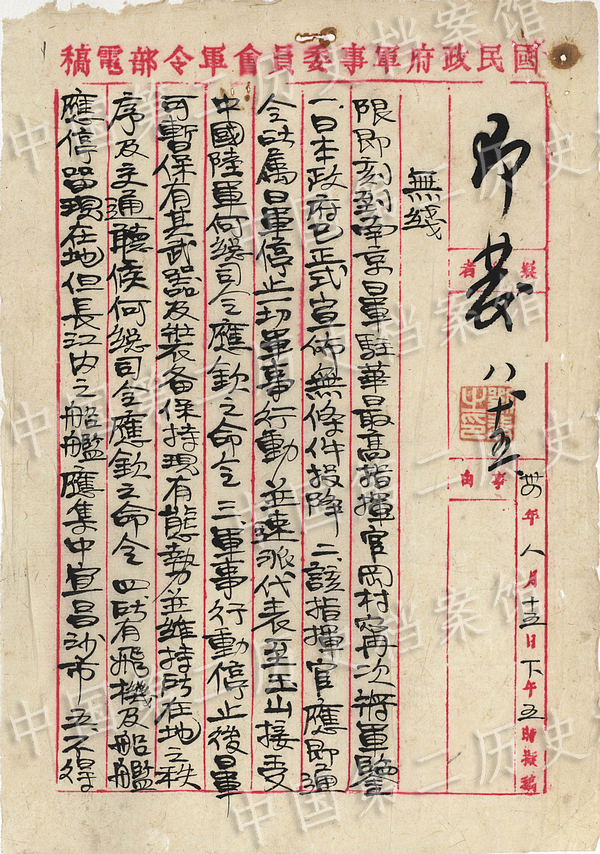 國民政府軍事委員會軍令部電稿
年八月十五日下午五時擬稿
擬 者
事由
即發 八十五
無綫
限即刻到南京日軍駐華最高指揮官岡村寧次將軍鑒
一、日本政府已正式宣佈無條件投降 二、該指揮官應即通
令所屬日軍停止一切軍事行動並速派代表至玉山接受
中國陸軍何總司令應欽之命令 三、軍事行動停止後日軍
可暫保有其武器及裝备保持現有態勢並維持所在地之秩
序及交通聽候何總司令應欽之命令 四、所有飛機及船艦
應停留現在地但長江內之船艦應集中宜昌沙市 五、不得
中国第二历史档案馆